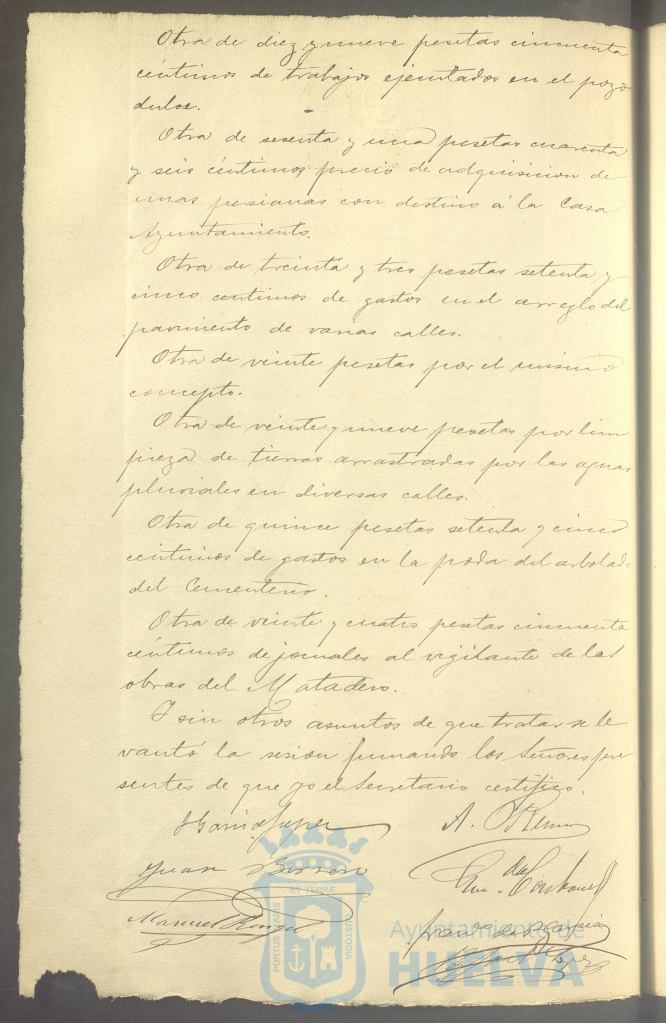 Otra de diez y nueve pesetas cincuenta
céntimos de trabajos ejecutados en el pozo
dulce.
Otra de sesenta y una pesetas cuarenta
y seis céntimos precio de adquisicion de
unas persianas con destino á la Casa
Ayuntamiento.
Otra de treinta y tres pesetas setenta y
cinco centimos de gastos en el arreglo del
pavimento de varias calles.
Otra de veinte pesetas por el mismo
concepto.
Otra de veinte y nueve pesetas por lim
pieza de tierras arrastradas por las aguas
pluviales en diversas calles.
Otra de quince pesetas setenta y cinco
centimos de gastos en la poda del arbolado
del Cementerio.
Otra de veinte y cuatro pesetas cincuenta
céntimos de jornales al vigilante de las
obras del Matadero.
Y sin otros asuntos de que tratar se le
vantó la sesion firmando los Señores pre
sentes de que yo el Secretario certifico.
A.
Juan
Manuel
PORTUS MARIS ET TERRÆ CUSTODIA
Ayuntamiento de
HUELVA